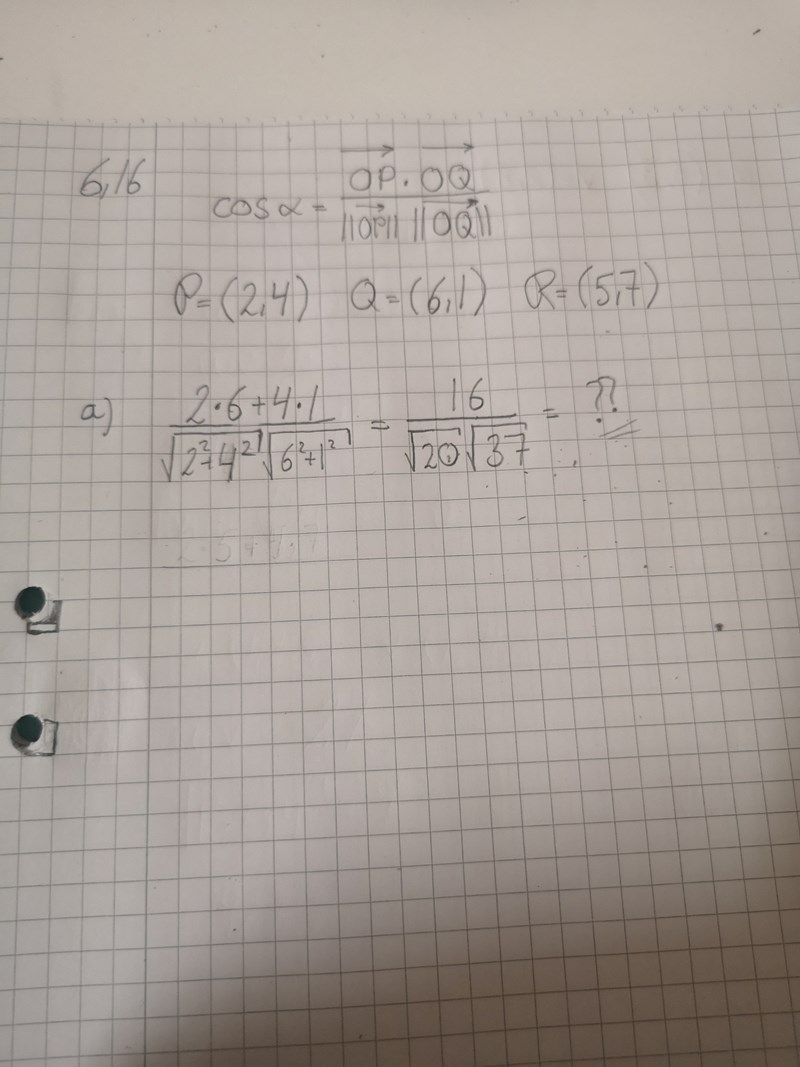 6,16
cos α = OP⃗ · OQ⃗ / ||OP⃗|| ||OQ⃗||
P = (2,4) Q = (6,1) R = (5,7)
a) 2·6+4·1 / √2²+4² √6²+1² = 16 / √20 √37 = ??